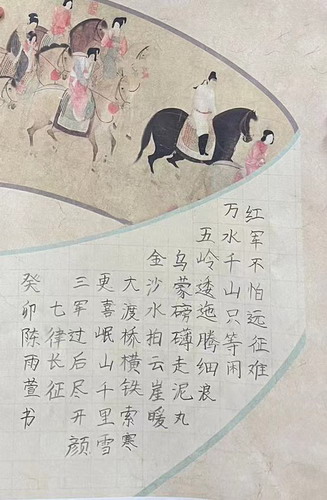 红军不怕远征难
万水千山只等闲
五岭逶迤腾细浪
乌蒙磅礴走泥丸
金沙水拍云崖暖
大渡桥横铁索寒
更喜岷山千里雪
三军过后尽开颜
七律长征
癸卯陈雨萱书